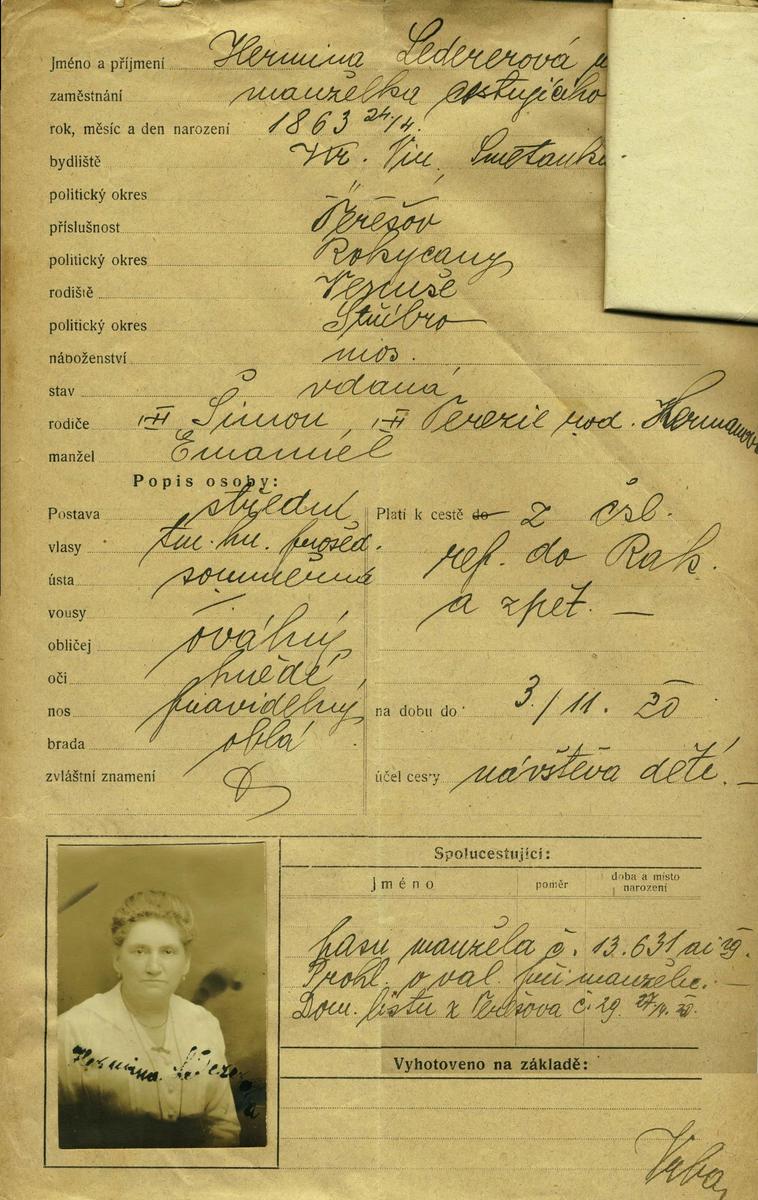 Jméno a příjmení Hermina Ledererová
zaměstnání manželka cestujícího
rok, měsíc a den narození 1863 24/4.
bydliště Kr. Vin. Smetanka
politický okres "
příslušnost Terešov
politický okres Rokycany
rodiště
politický okres Stříbro
náboženství mos.
stav vdaná
rodiče Šimon, Terezie rod. Hermanova
manžel Emanuel
Popis osoby:
Postava střední
vlasy tm. hn. prošed.
ústa souměrná
vousy —
obličej oválný
oči hnědé
nos pravidelný
brada oblá
zvláštní znamení
Platí k cestě do z čsl.
rep. do Rak.
a zpět. —
na dobu do 3/11. 20
účel cesty návštěva dětí. —
Spolucestující:
Jméno poměr doba a místo narození
pasu manžela č. 13.631 ai 19.
Prohl. o val. při manželc. —
Dom. listu z Terešova č. 29 20.
Vyhotoveno na základě:
Hermina Ledererová
Vrba